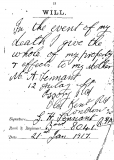 WILL.
In the event of my
death I give the
whole of my property
& effects to my mother
M. A. Tennant
12
Old Kent Rd
London
Signature
Tennant
Date 21 Jan 1917.